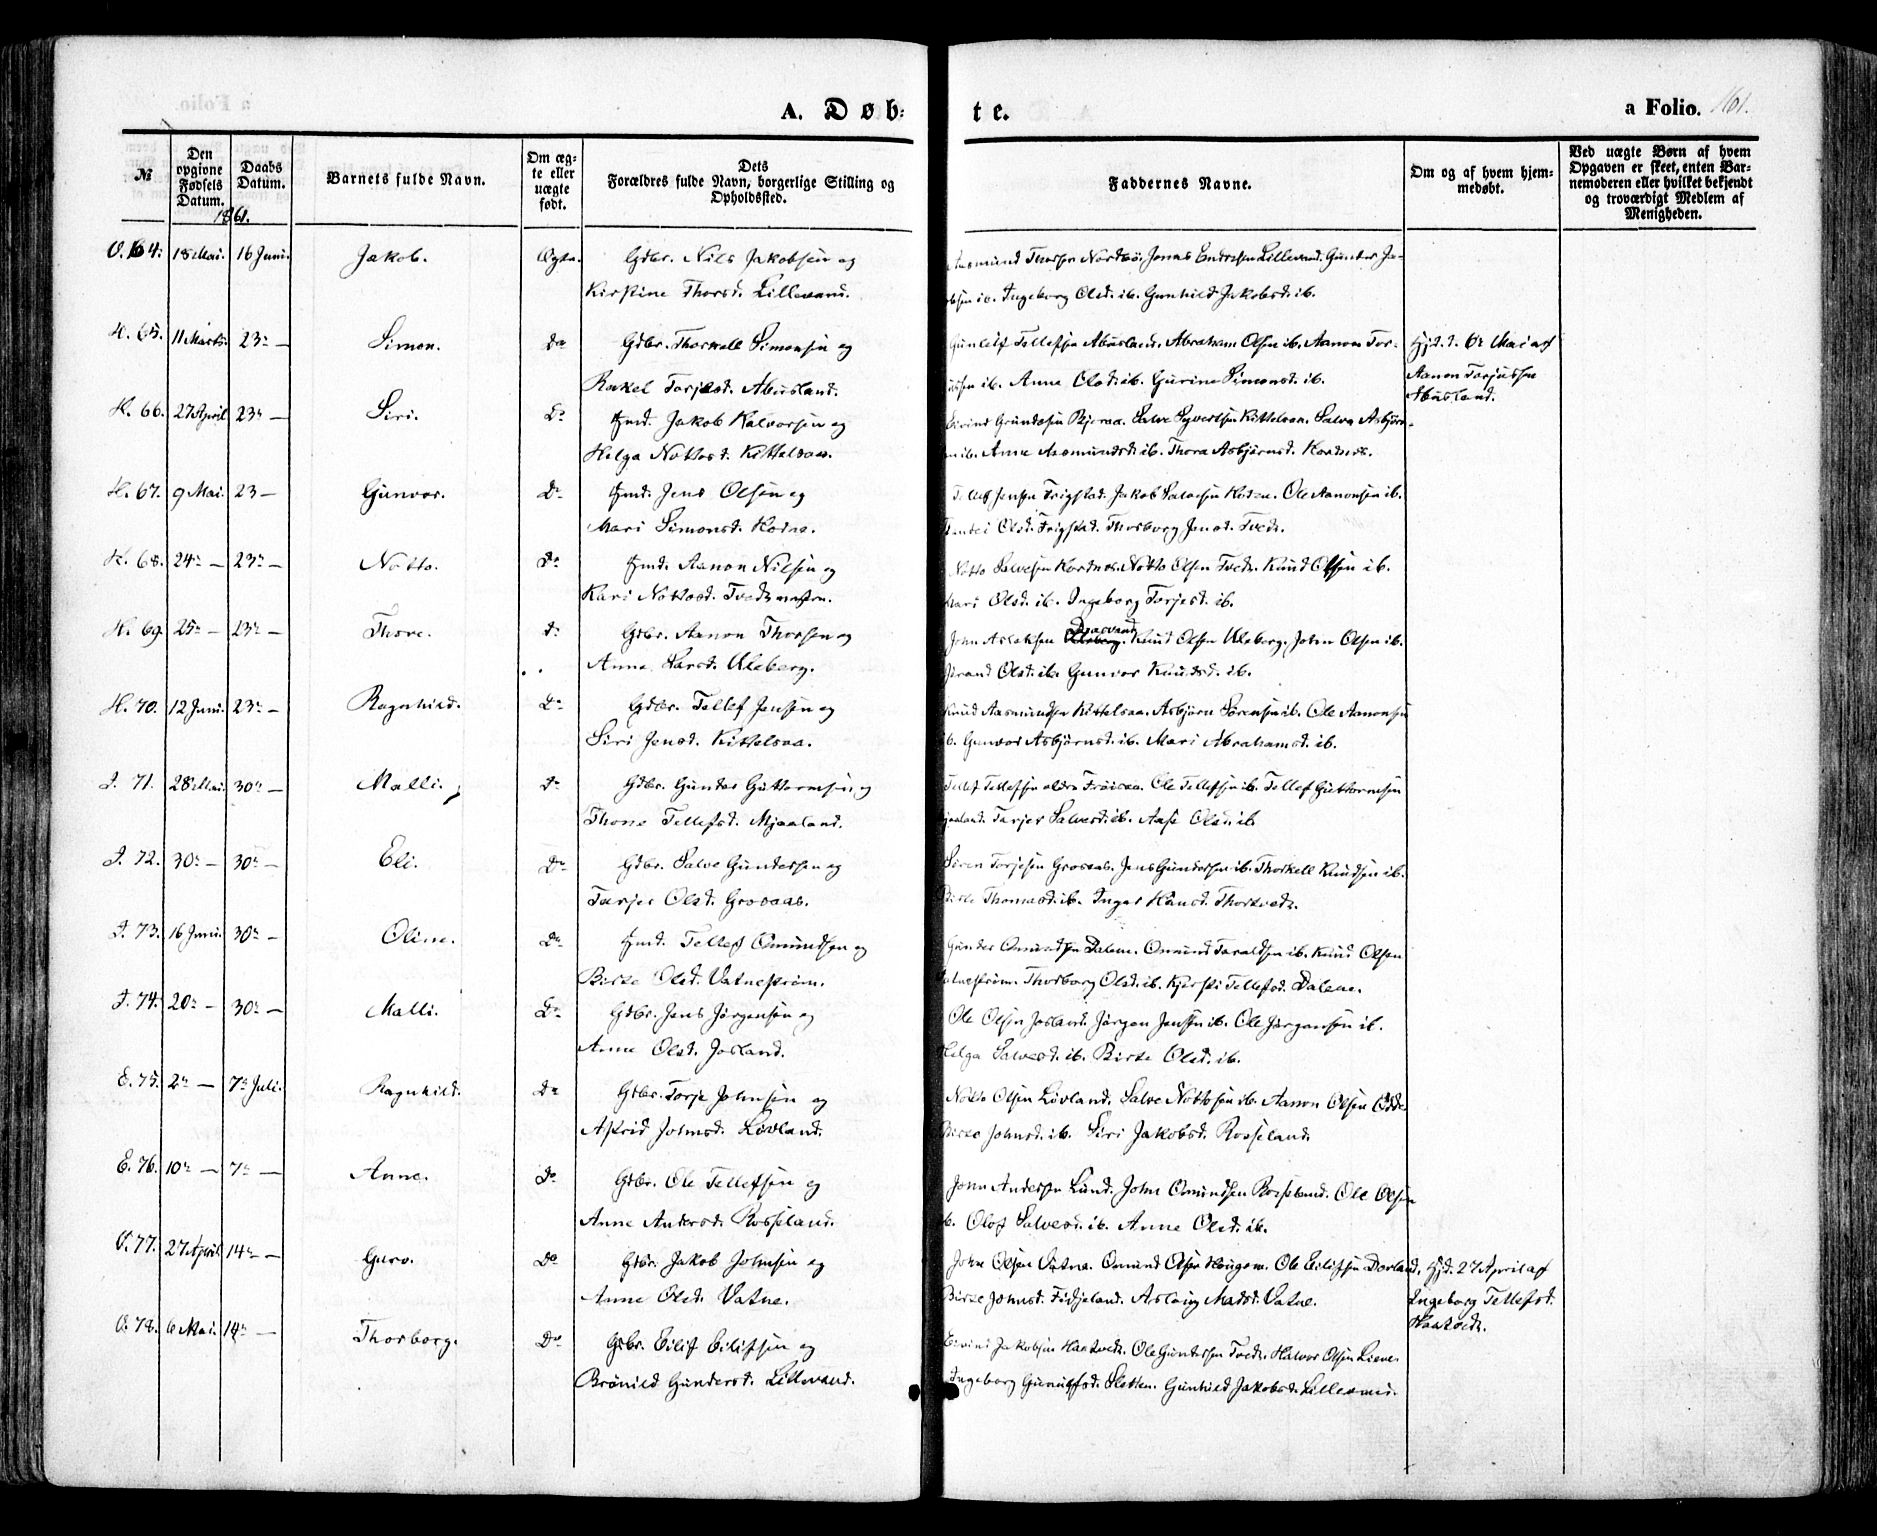 A. Døb-
te.
a Folio. 161.
№
Den opgivne Fødsels Datum.
Daabs Datum.
Barnets fulde Navn.
Om ægte eller uægte født.
Dets Forældres fulde Navn, borgerlige Stilling og Opholdssted.
Faddernes Navne.
Om og af hvem hjemmedøbt.
Ved uægte Børn af hvem Opgaven er skeet, enten Barnemoderen eller hvilket bekjendt og troværdigt Medlem af Menigheden.
1861.
O. 64. 18 Mai. 16 Juni. Jakob. Ægte. Gdbr. Nils Jakobsen og
Kirstine Thorsd. Lillevand.
Aasmund Thorsen Nordbö. Jonas Endresen Lillevand. Gunder Ja-
obsen ib. Ingeborg Olsd. ib. Gunhild Jakobsd. ib.
H. 65. 11 Marts. 23n — Simon. Do Gdbr. Thorkell Simonsen og
Rakel Torjusd. Abusland.
Gunleif Tellefsen Abusland. Abraham Olsen ib. Aanon Tor-
jussen ib. Anne Olsd. ib. Gurine Simonsd. ib.
Hjd. d. 6te Mai af
Aanon Torjussen
Abusland.
H. 66. 27 April 23n — Siri. Do Hmd. Jakob Halvorsen og
Helga Nottosd. Kittelsaa.
Eivind Gundersen Bjoraa. Salve Syvertsen Kittelsaa. Salve Asbjörn-
sen ib. Anne Aasmundsd. ib. Thora Asbjörnsd. Hodnes.
H. 67. 9 Mai. 23 — Gunvor. Do Hmd. Jens Olsen og
Mari Simonsd. Hodne.
Tellef Jensen Frigstad. Jakob Salvesen Hodne. Ole Aanonsen ib.
Olsd. Frigstad. Thorborg Jensd. Tvedt.
H. 68. 24n — 23n — Notto. Do Hmd. Aanon Nilsen og
Kari Nottosd. Tvedtmoen.
Notto Salvesen Hodnes. Notto Olsen Tvedt. Knud Olsen ib.
Mari Olsd. ib. Ingeborg Torjesd. ib.
H. 69. 25n — 23n — Thore. Do Gdbr. Aanon Thorsen og
Anne Larsd. Uleberg.
John Aslaksen Uleberg. Knud Olsen Uleberg. John Olsen ib.
Jorand Olsd. ib. Gunvor Knudsd. ib.
H. 70. 12 Juni. 23n — Ragnhild. Do Gdbr. Tellef Jensen og
Siri Jensd. Kittelsaa.
Knud Aasmundsen Kittelsaa. Asbjörn Sörensen ib. Ole Aanonsen
ib. Gunvor Asbjörnsd. ib. Mari Abrahamsd. ib.
I. 71. 28 Mai. 30n — Malli. Do Gdbr. Gunder Guttormsen og
Thone Tellefsd. Mjaaland.
Tellef Tellefsen eldre Fröisaa. Ole Tellefsen ib. Tellef Guttormsen
Mjaaland. Tarjer Salvesd. ib. Aase Olsd. ib.
I. 72. 30n — 30n — Eli. Do Gdbr. Salve Gundersen og
Tarjer Olsd. Grosaas.
Sören Torjesen Grosaas. Jens Gundersen ib. Thorkell Knudsen ib.
Birte Thomasd. ib. Inger Hansd. Thortvedt.
I. 73. 16 Juni. 30n — Oline. Do Hmd. Tellef Omundsen og
Birte Olsd. Vatneström.
Gunder Omundsen Dalene. Omund Taraldsen ib. Knud Olsen
Vatneström. Thorborg Olsd. ib. Kjersti Tellefsd. Dalene.
I. 74. 20n — 30n — Malli. Do Gdbr. Jens Jörgensen og
Anne Olsd. Josland.
Ole Olsen Josland. Jörgen Jensen ib. Ole Jörgensen ib.
Helga Salvesd. ib. Birte Olsd. ib.
E. 75. 2n — 7n Juli. Ragnhild. Do Gdbr. Torje Johnsen og
Astrid Johnsd. Lövland.
Notto Olsen Lövland. Salve Nottosen ib. Aanon Olsen Odde.
Birte Johnsd. ib. Siri Jakobsd. Rosseland.
E. 76. 10n — 7n — Anne. Do Gdbr. Ole Tellefsen og
Anne Andersd. Rosseland.
John Andersen Lund. John Omundsen Rosseland. Ole Olsen
ib. Olof Salvesd. ib. Anne Olsd. ib.
O. 77. 27 April 14n — Guro. Do Gdbr. Jakob Johnsen og
Anne Olsd. Vatne.
John Olsen Vatne. Omund Olsen Haugom. Ole Eilifsen Dovland.
Birte Johnsd. Fidjeland. Aslaug Madsd. Vatne.
Hjd. 27 April af
Ingeborg Tellefsd.
Haatvedt.
O. 78. 6 Mai. 14n — Thorborg. Do Gdbr. Eilif Eilifsen og
Brönild Gundersd. Lillevand.
Eivind Jakobsen Haatvedt. Ole Gundersen Tvedt. Halvor Olsen Liene.
Ingeborg Gunulfsd. Sletten. Gunhild Jakobsd. Lillevand.